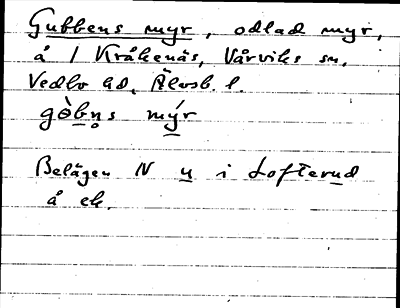 Gubbens myr, odlad myr,
å 1 Kråkenäs, Vårviks sn,
Vedbo hd, Älvsb. l.
gòbn̥s mýr
Belägen N u i Lofterud
å ek.